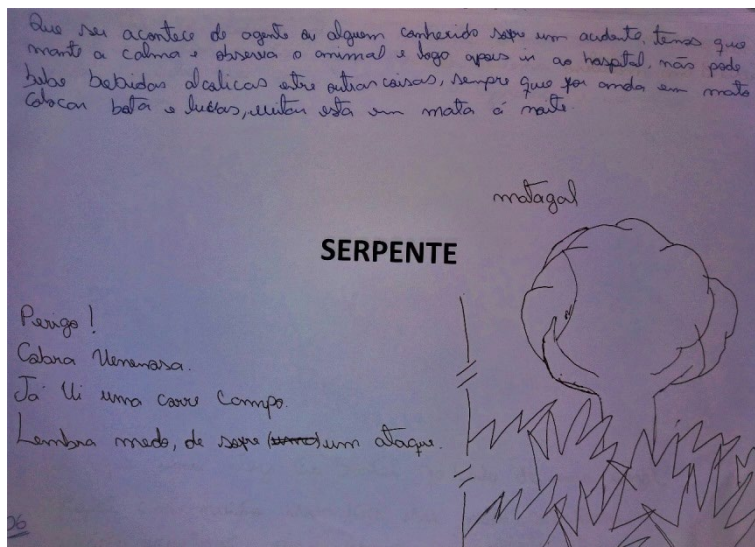 Que seu acontece de agente ou alguem conhecido sofre um acidente, temos que
mante a calma e observa o animal e logo apois ir ao hospital, não pode
bebe bebidas alcalicas entre outras coisas, sempre que for anda em mato
Colocar bota e luvas, evitar esta em mata á noite.
matagal
SERPENTE
Perigo!
Cobra Venenosa.
Já Vi uma corre Campo.
Lembra medo, de sofre um ataque.
06